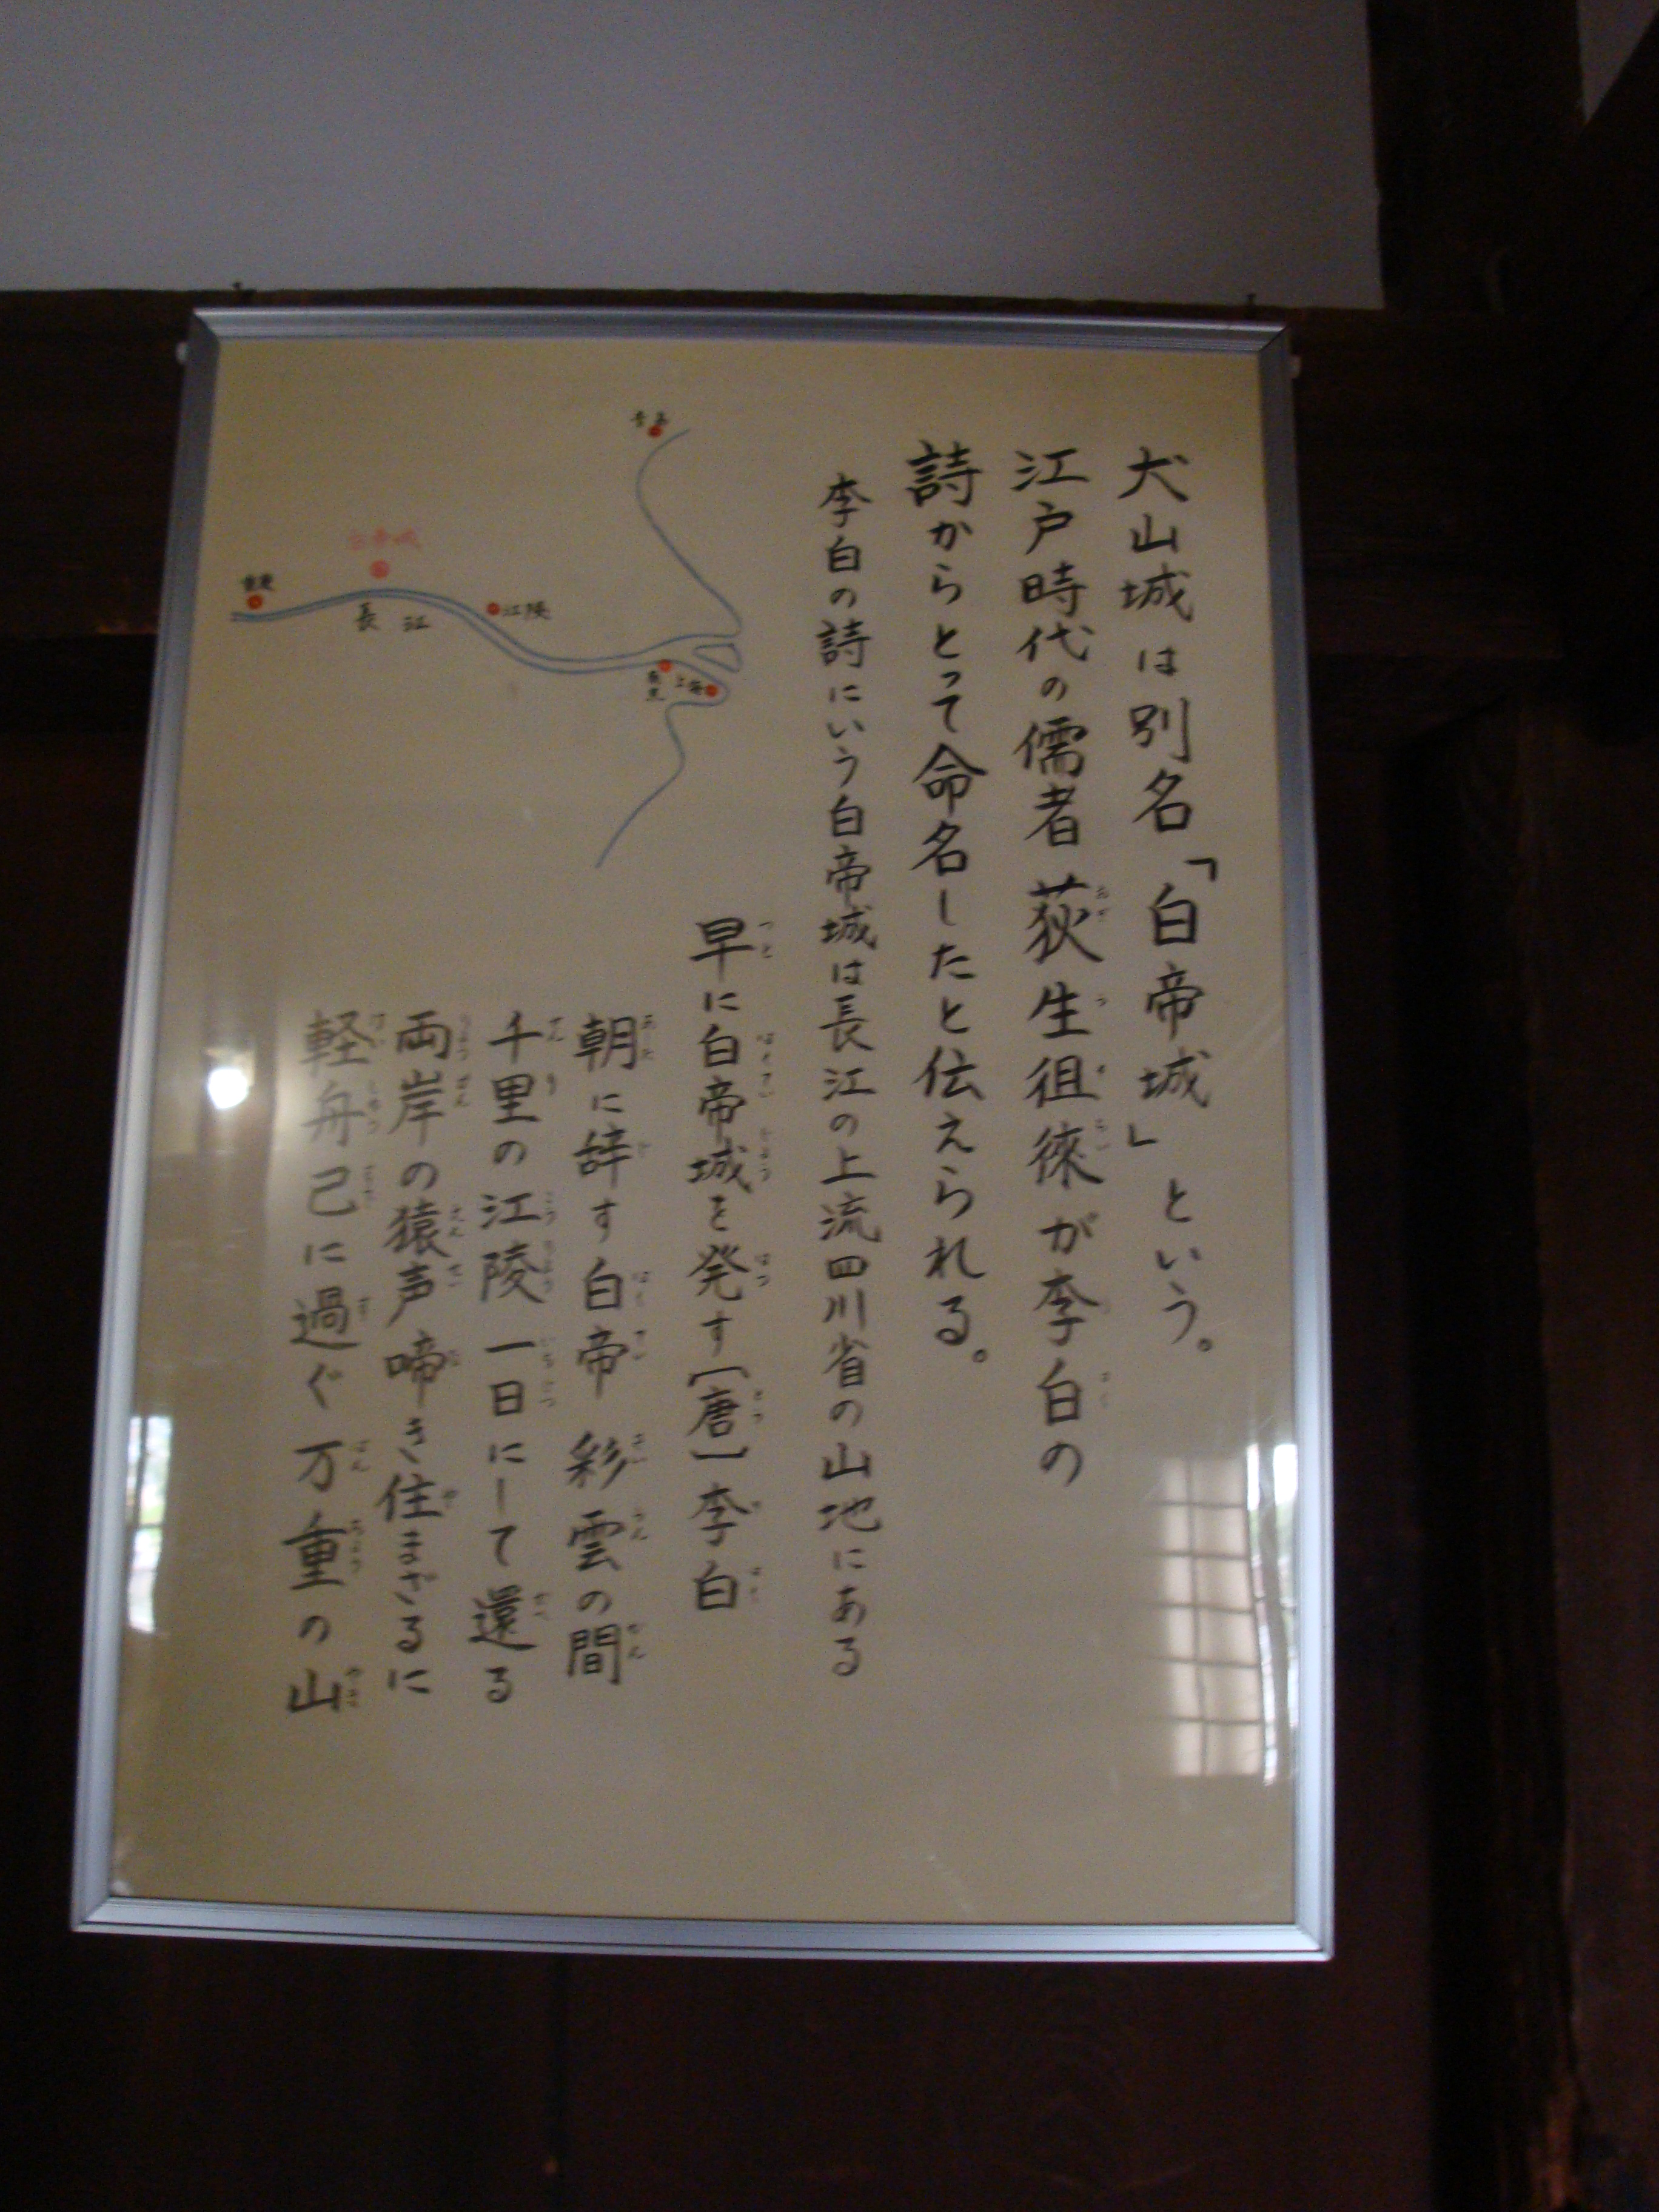 犬山城は別名「白帝城」という。
江戸時代の儒者荻生徂徠が李白の
詩からとって命名したと伝えられる。
李白の詩にいう白帝城は長江の上流四川省の山地にある
早に白帝城を発す[唐]李白
朝に辞す白帝 彩雲の間
千里の江陵 一日にして還る
両岸の猿声 啼き住まざるに
軽舟己に過ぐ 万重の山
青島
白帝城
重慶
長江
江陵
上海